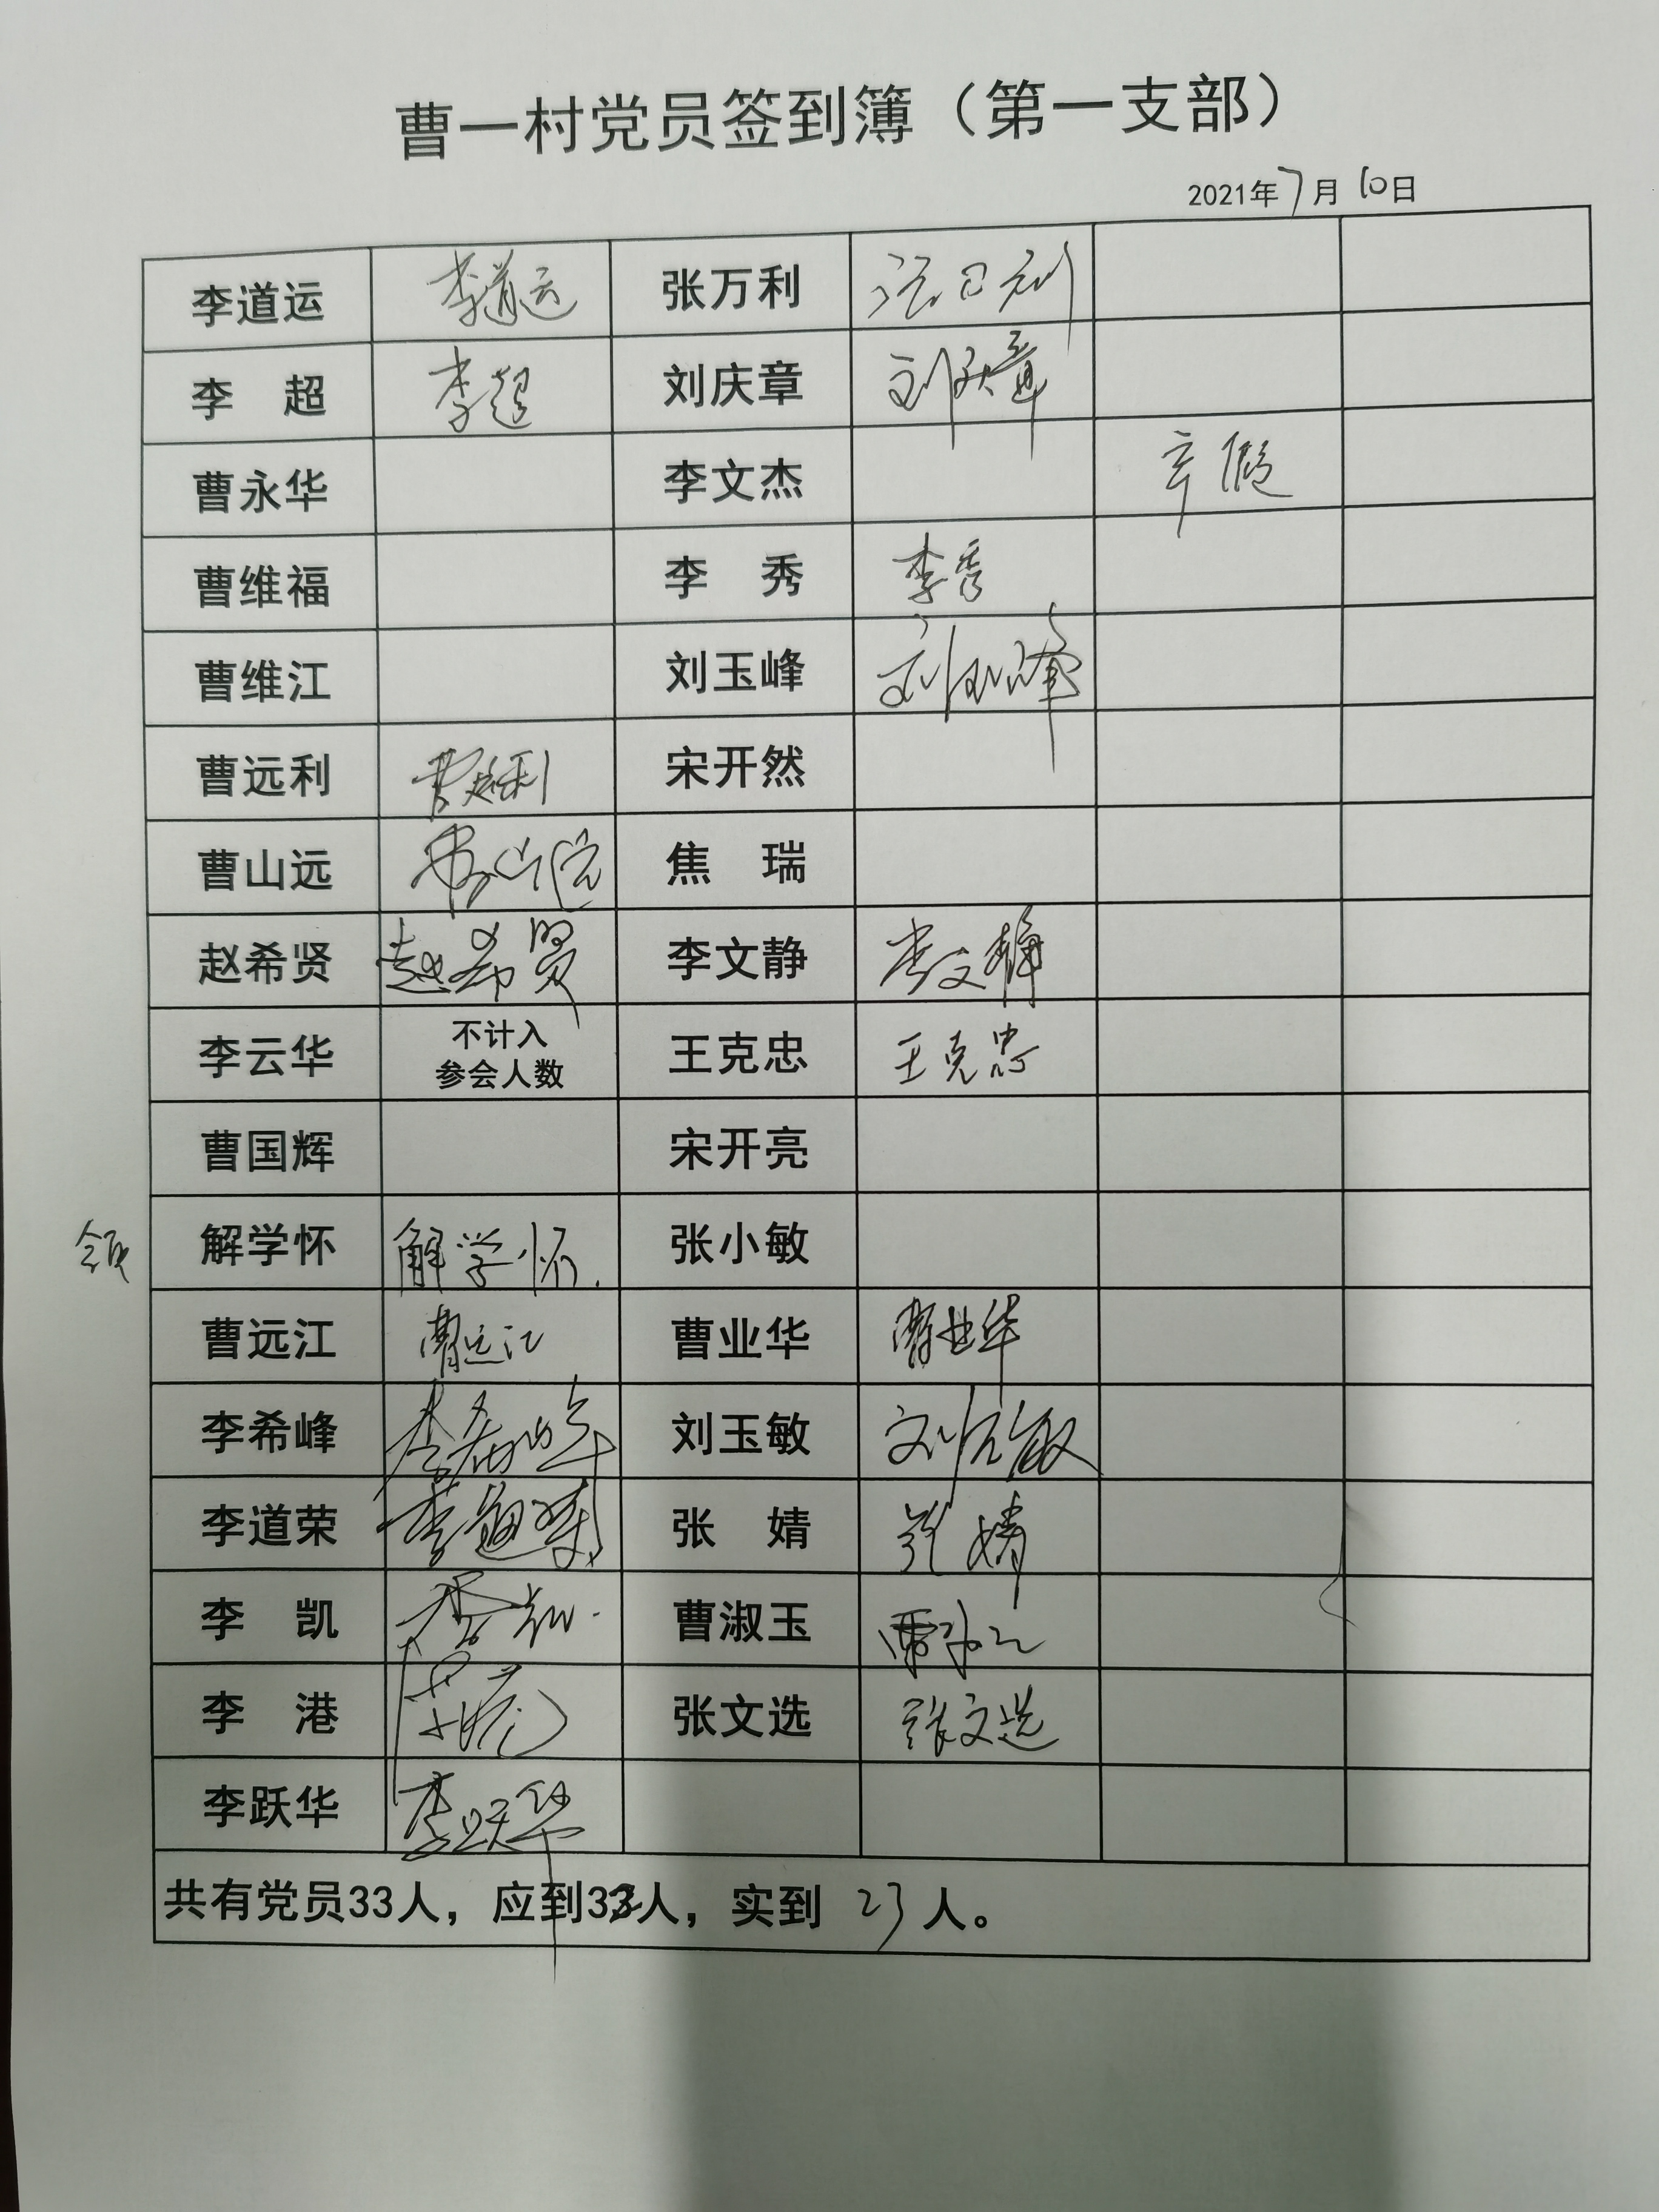 曹一村党员签到簿（第一支部）
2021年7月10日
李道运 李道运 张万利 张万利
李 超 李超 刘庆章 刘庆章
曹永华 李文杰 章假
曹维福 李 秀 李秀
曹维江 刘玉峰 刘玉峰
曹远利 曹远利 宋开然
曹山远 曹山远 焦 瑞
赵希贤 赵希贤 李文静 李文静
李云华 不计入 王克忠 王克忠
参会人数
曹国辉 宋开亮
领 解学怀 解学怀 张小敏
曹远江 曹远江 曹业华 曹业华
李希峰 李希峰 刘玉敏 刘玉敏
李道荣 李道荣 张 婧 张婧
李 凯 李凯 曹淑玉 曹淑玉
李 港 李港 张文选 张文选
李跃华 李跃华
共有党员33人，应到32人，实到 23 人。